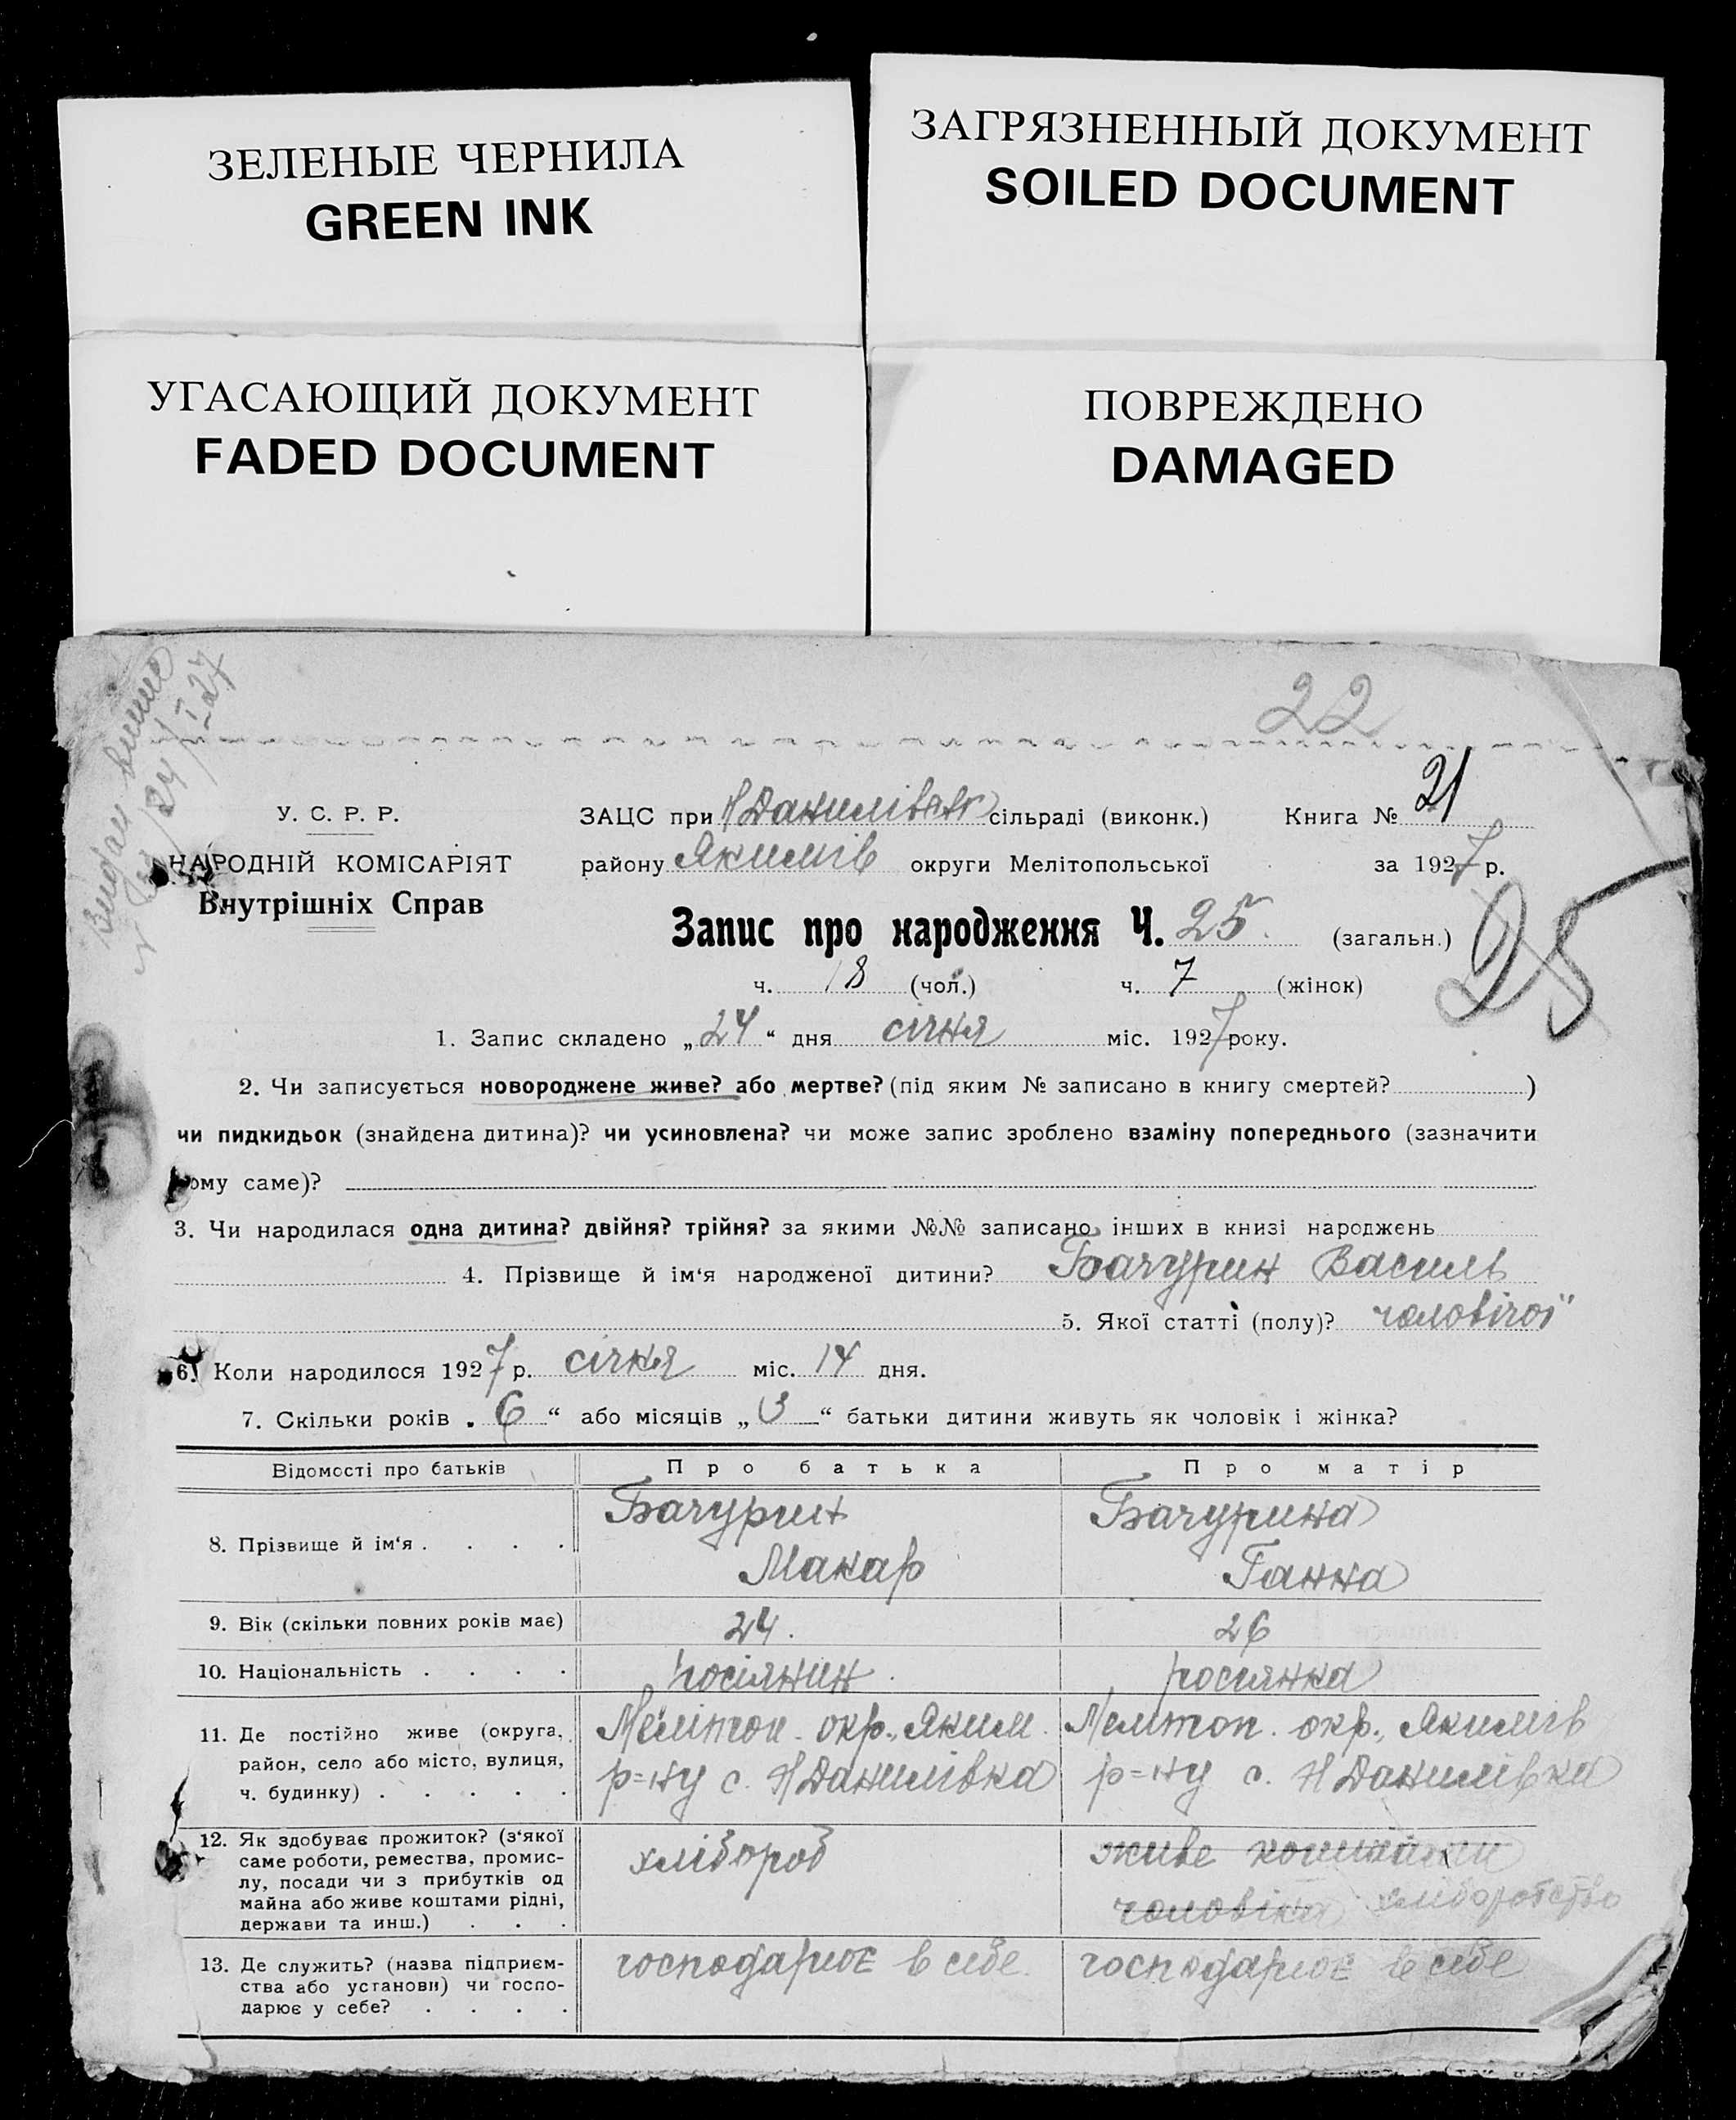 ЗЕЛЕНЫЕ ЧЕРНИЛА
GREEN INK
ЗАГРЯЗНЕННЫЙ ДОКУМЕНТ
SOILED DOCUMENT
УГАСАЮЩИЙ ДОКУМЕНТ
FADED DOCUMENT
ПОВРЕЖДЕНО
DAMAGED
22
24/I-27
У. С. Р. Р.
ЗАЦС при Н Данилівск сільраді (виконк.) Книга № 21
НАРОДНІЙ КОМІСАРІЯТ
району Якимів округи Мелітопольської за 1927 р.
Внутрішніх Справ
Запис про народження Ч. 25. (загальн.)
25
ч. 18 (чол.) ч. 7 (жінок)
1. Запис складено „24“ дня січня міс. 1927 року.
2. Чи записується новороджене живе? або мертве? (під яким № записано в книгу смертей? )
чи пидкидьок (знайдена дитина)? чи усиновлена? чи може запис зроблено взаміну попереднього (зазначити
ому саме)?
3. Чи народилася одна дитина? двійня? трійня? за якими №№ записано інших в книзі народжень
4. Прізвище й ім‘я народженої дитини? Бачурин Василь
5. Якої статті (полу)? чоловічої
6. Коли народилося 1927 р. січня міс. 14 дня.
7. Скільки років „6“ або місяців „3“ батьки дитини живуть як чоловік і жінка?
Відомості про батьків Про батька Про матір
8. Прізвище й ім‘я . . . . Бачурин Макар Бачурина Ганна
9. Вік (скільки повних років має) 24. 26
10. Національність . . . . росіянин росіянка
11. Де постійно живе (округа,
район, село або місто, вулиця,
ч. будинку) . . . . .
Мелітоп. окр., Яким.
р=ну с. Н Данилівка
Мелітоп. окр., Якимів
р=ну с. Н Данилівка
12. Як здобуває прожиток? (з‘якої
саме роботи, ремества, промис-
лу, посади чи з прибутків од
майна або живе коштами рідні,
держави та инш.) . . .
хлібороб
живе коштами
чоловіка хліборобство
13. Де служить? (назва підприєм-
ства або установи) чи госпо-
дарює у себе? . . . .
господарює в себе
господарює в себе